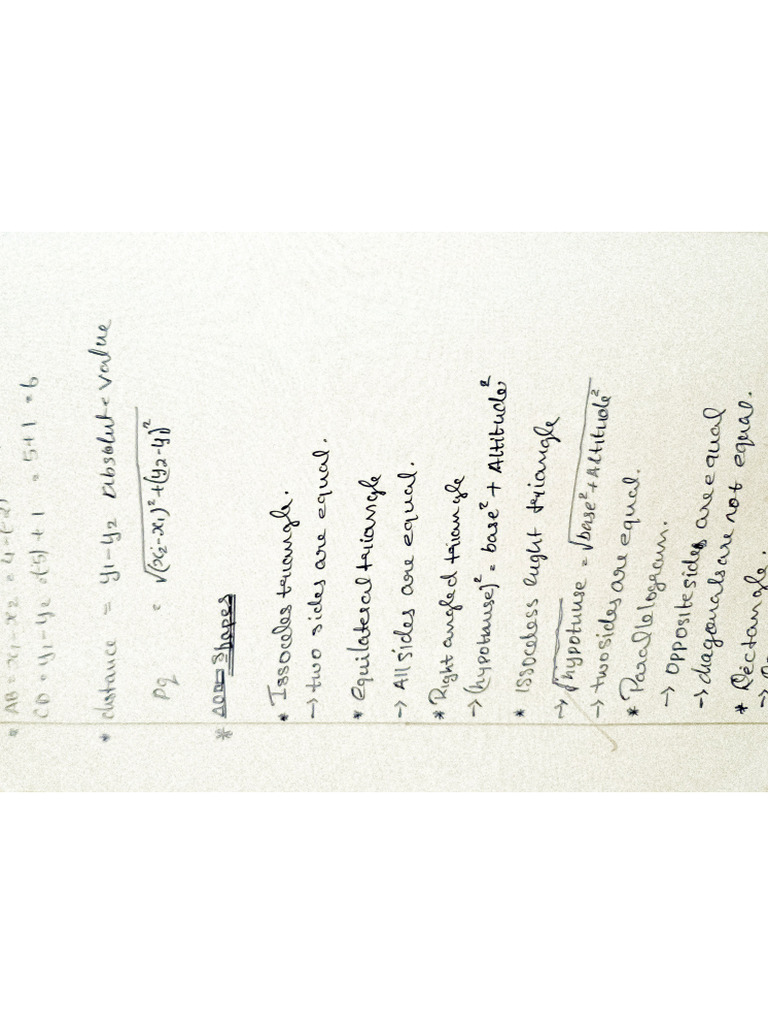 * AB = x₁-x₂ = 4-(-2)
CD = y₁-y₂ = (5)+1 = 5+1 = 6
* distance = y₁-y₂ absolute value
Pq = √(x₂-x₁)²+(y₂-y₁)²
* Shapes
* Issoceles triangle.
→ two sides are equal.
* equilateral triangle
→ All sides are equal.
* Right angled triangle
→ (hypotnuse)² = base² + Altitude²
* Issoceless right triangle
→ √hypotnuse = √base²+Altitude²
→ two sides are equal.
* Parallelogram.
→ opposite sides are equal
→ diagonals are not equal.
* Rectangle.